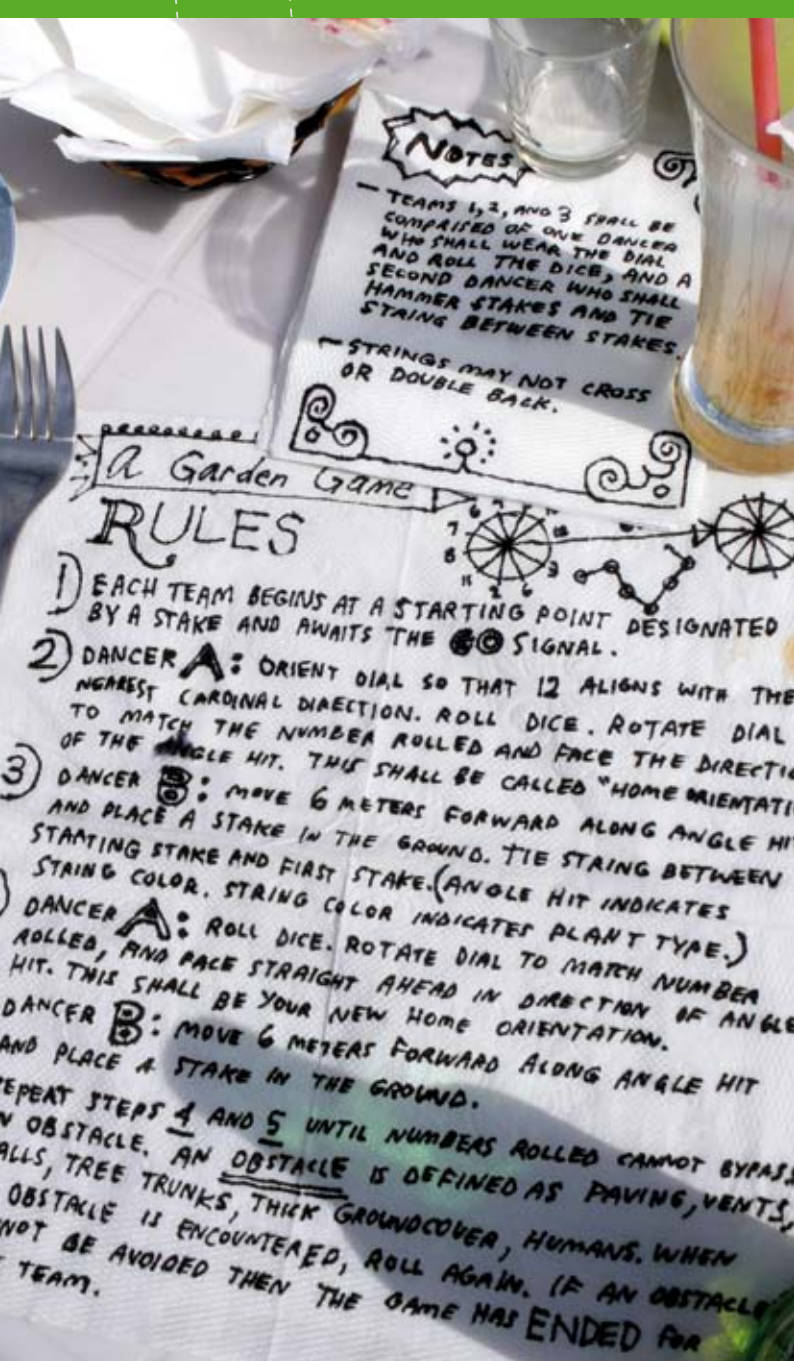 NOTES
— TEAMS 1, 2, AND 3 SHALL BE
COMPRISED OF ONE DANCER
WHO SHALL WEAR THE DIAL
AND ROLL THE DICE, AND A
SECOND DANCER WHO SHALL
HAMMER STAKES AND TIE
STRING BETWEEN STAKES.
— STRINGS MAY NOT CROSS
OR DOUBLE BACK.
a Garden Game
RULES
1) EACH TEAM BEGINS AT A STARTING POINT DESIGNATED
BY A STAKE AND AWAITS THE GO SIGNAL.
2) DANCER A: ORIENT DIAL SO THAT 12 ALIGNS WITH THE
NEAREST CARDINAL DIRECTION. ROLL DICE. ROTATE DIAL
TO MATCH THE NUMBER ROLLED AND FACE THE DIRECTIO
OF THE ANGLE HIT. THIS SHALL BE CALLED "HOME ORIENTATI
3) DANCER B: MOVE 6 METERS FORWARD ALONG ANGLE HI
AND PLACE A STAKE IN THE GROUND. TIE STRING BETWEEN
STARTING STAKE AND FIRST STAKE. (ANGLE HIT INDICATES
STRING COLOR. STRING COLOR INDICATES PLANT TYPE.)
) DANCER A: ROLL DICE. ROTATE DIAL TO MATCH NUMBER
ROLLED, AND PACE STRAIGHT AHEAD IN DIRECTION OF ANGLE
HIT. THIS SHALL BE YOUR NEW HOME ORIENTATION.
DANCER B: MOVE 6 METERS FORWARD ALONG ANGLE HIT
AND PLACE A STAKE IN THE GROUND.
EPEAT STEPS 4 AND 5 UNTIL NUMBERS ROLLED CANNOT BYPASS
N OBSTACLE. AN OBSTACLE IS DEFINED AS PAVING, VENTS,
ALLS, TREE TRUNKS, THICK GROUNDCOVER, HUMANS. WHEN
OBSTACLE IS ENCOUNTERED, ROLL AGAIN. IF AN OBSTACLE
NOT BE AVOIDED THEN THE GAME HAS ENDED FOR
TEAM.